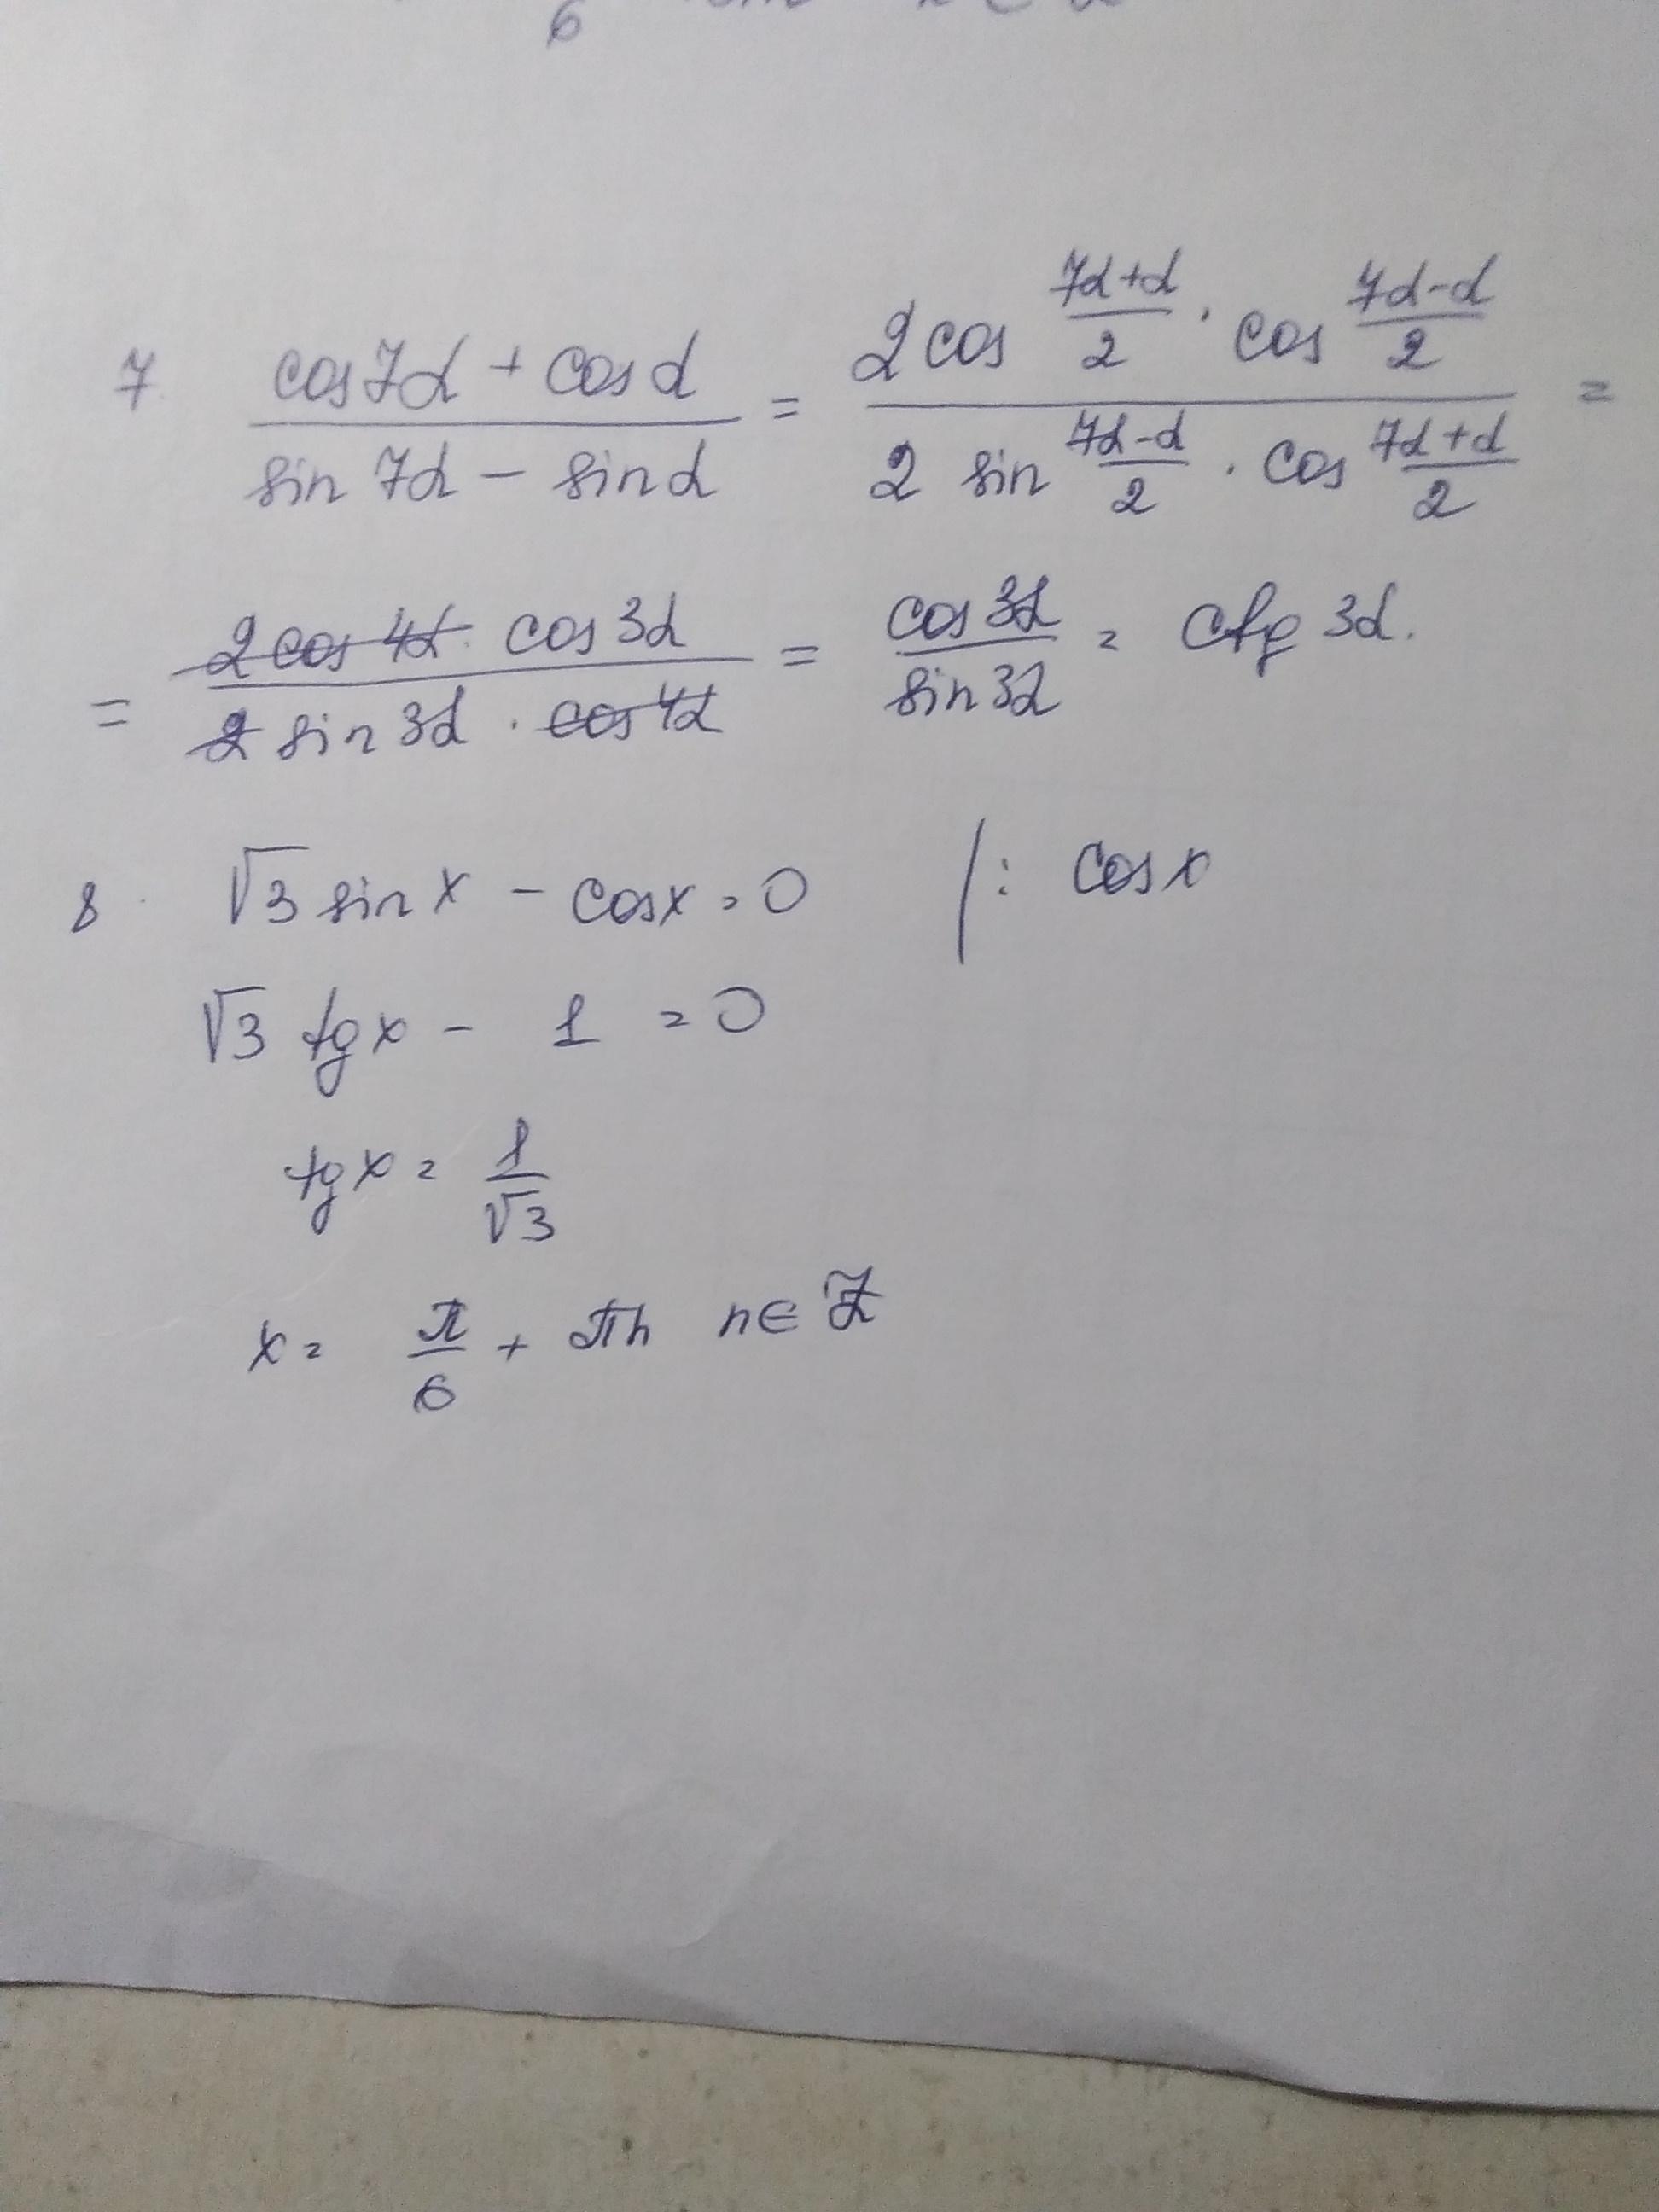 6
7. (cos7α + cosα)/(sin7α − sinα) = (2cos (7α+α)/2 · cos (7α−α)/2)/(2 sin (7α−α)/2 · cos (7α+α)/2) =
= (2cos4α · cos3α)/(2sin3α · cos4α) = cos3α/sin3α = ctg3α.
8. √3 sinx − cosx = 0 /: cosx
√3 tgx − 1 = 0
tgx = 1/√3
x = π/6 + πn n∈Z